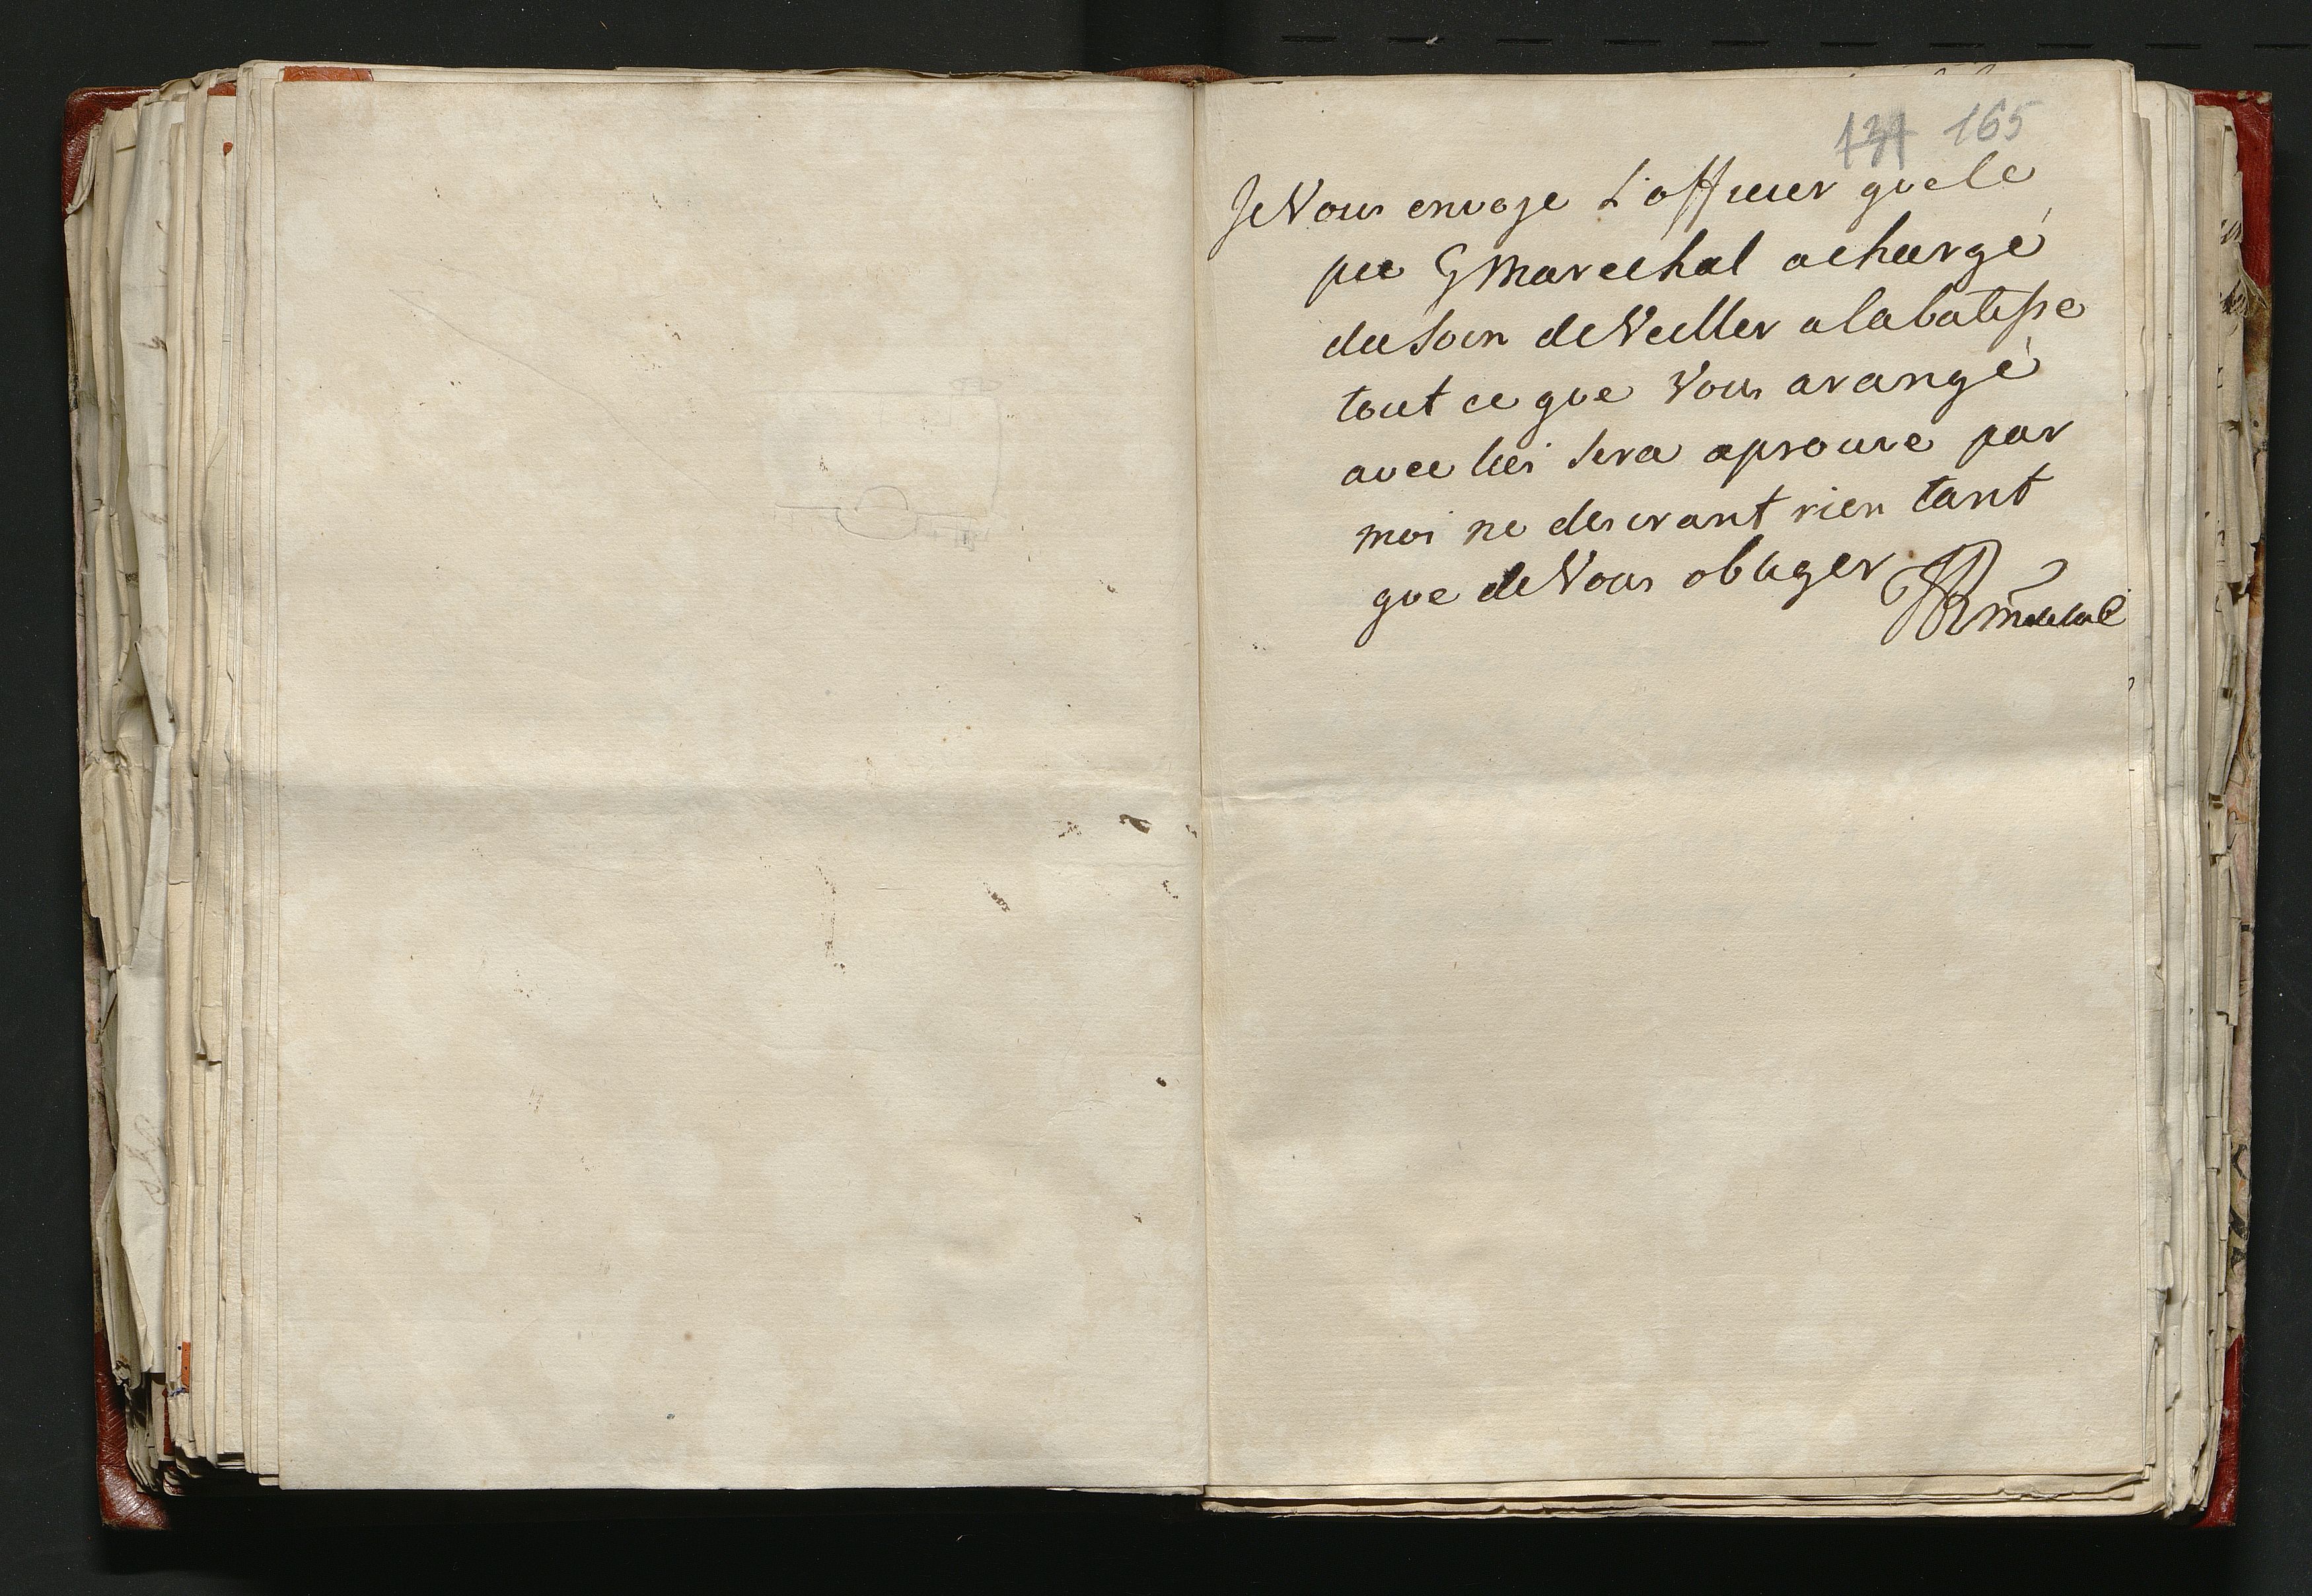 131 165
Je Vous envoye L'officier que le
peu G Marechal a chargé
du Soin de Veiller a la batisse
tout ce que Vous arangé
avec lui sera aprouve par
moi ne desirant rien tant
que de Vous obliger